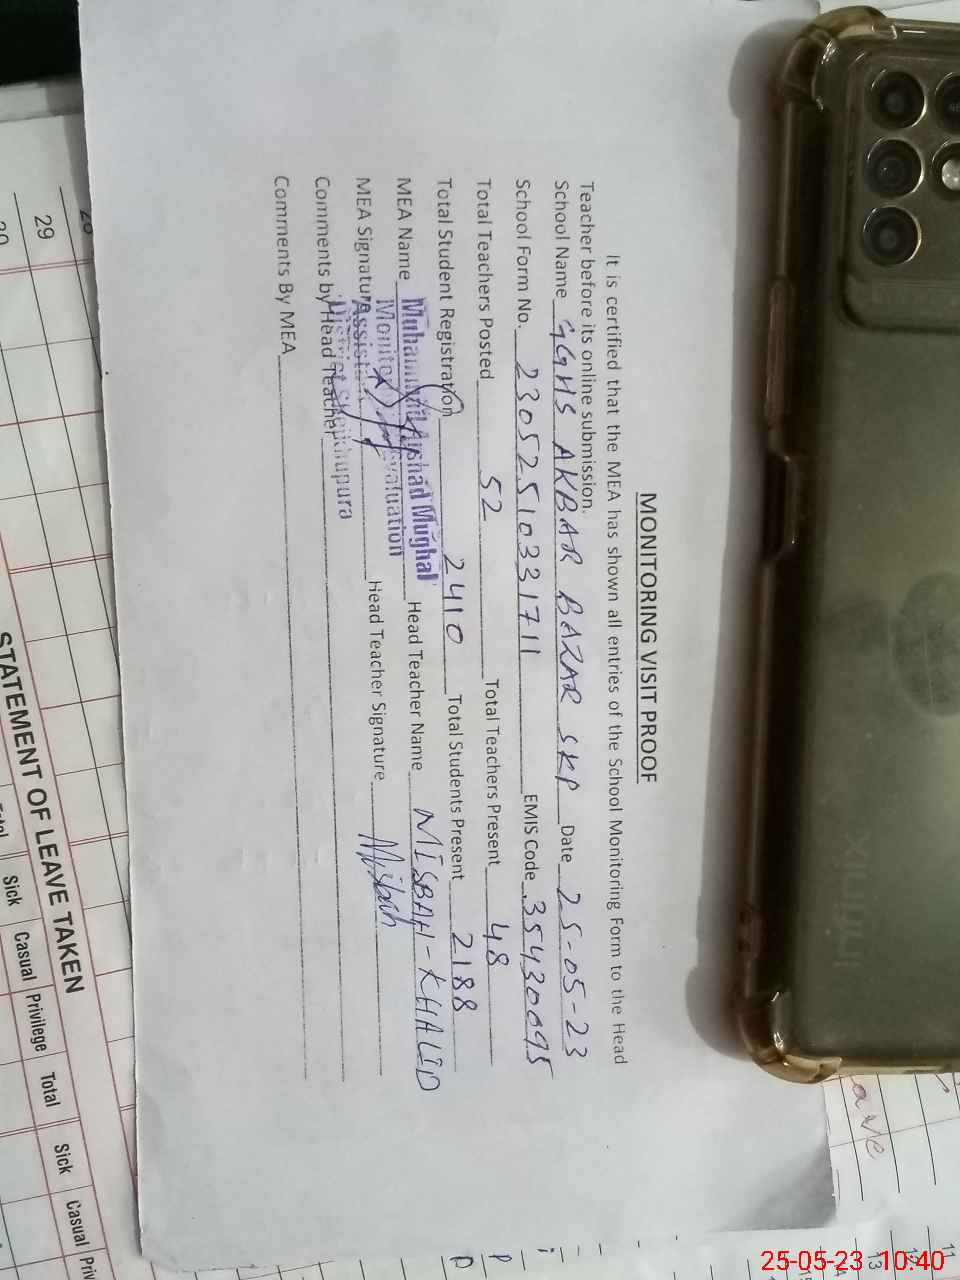 MONITORING VISIT PROOF
It is certified that the MEA has shown all entries of the School Monitoring Form to the Head
Teacher before its online submission.
School Name GGHS AKBAR BAZAR SKP Date 25-05-23
School Form No. 23052510331711 EMIS Code 35430095
Total Teachers Posted 52 Total Teachers Present 48
Total Student Registration 2410 Total Students Present 2188
MEA Name Muhammad Arshad Mughal Head Teacher Name MISBAH-KHALID
Monitoring Evaluation
MEA Signature Assistant Head Teacher Signature Misbah
District Sheikhupura
Comments by Head Teacher
Comments By MEA
STATEMENT OF LEAVE TAKEN
Sick Casual Privilege Total Sick Casual
29
infinix
11
12
13
P
P
25-05-23 10:40